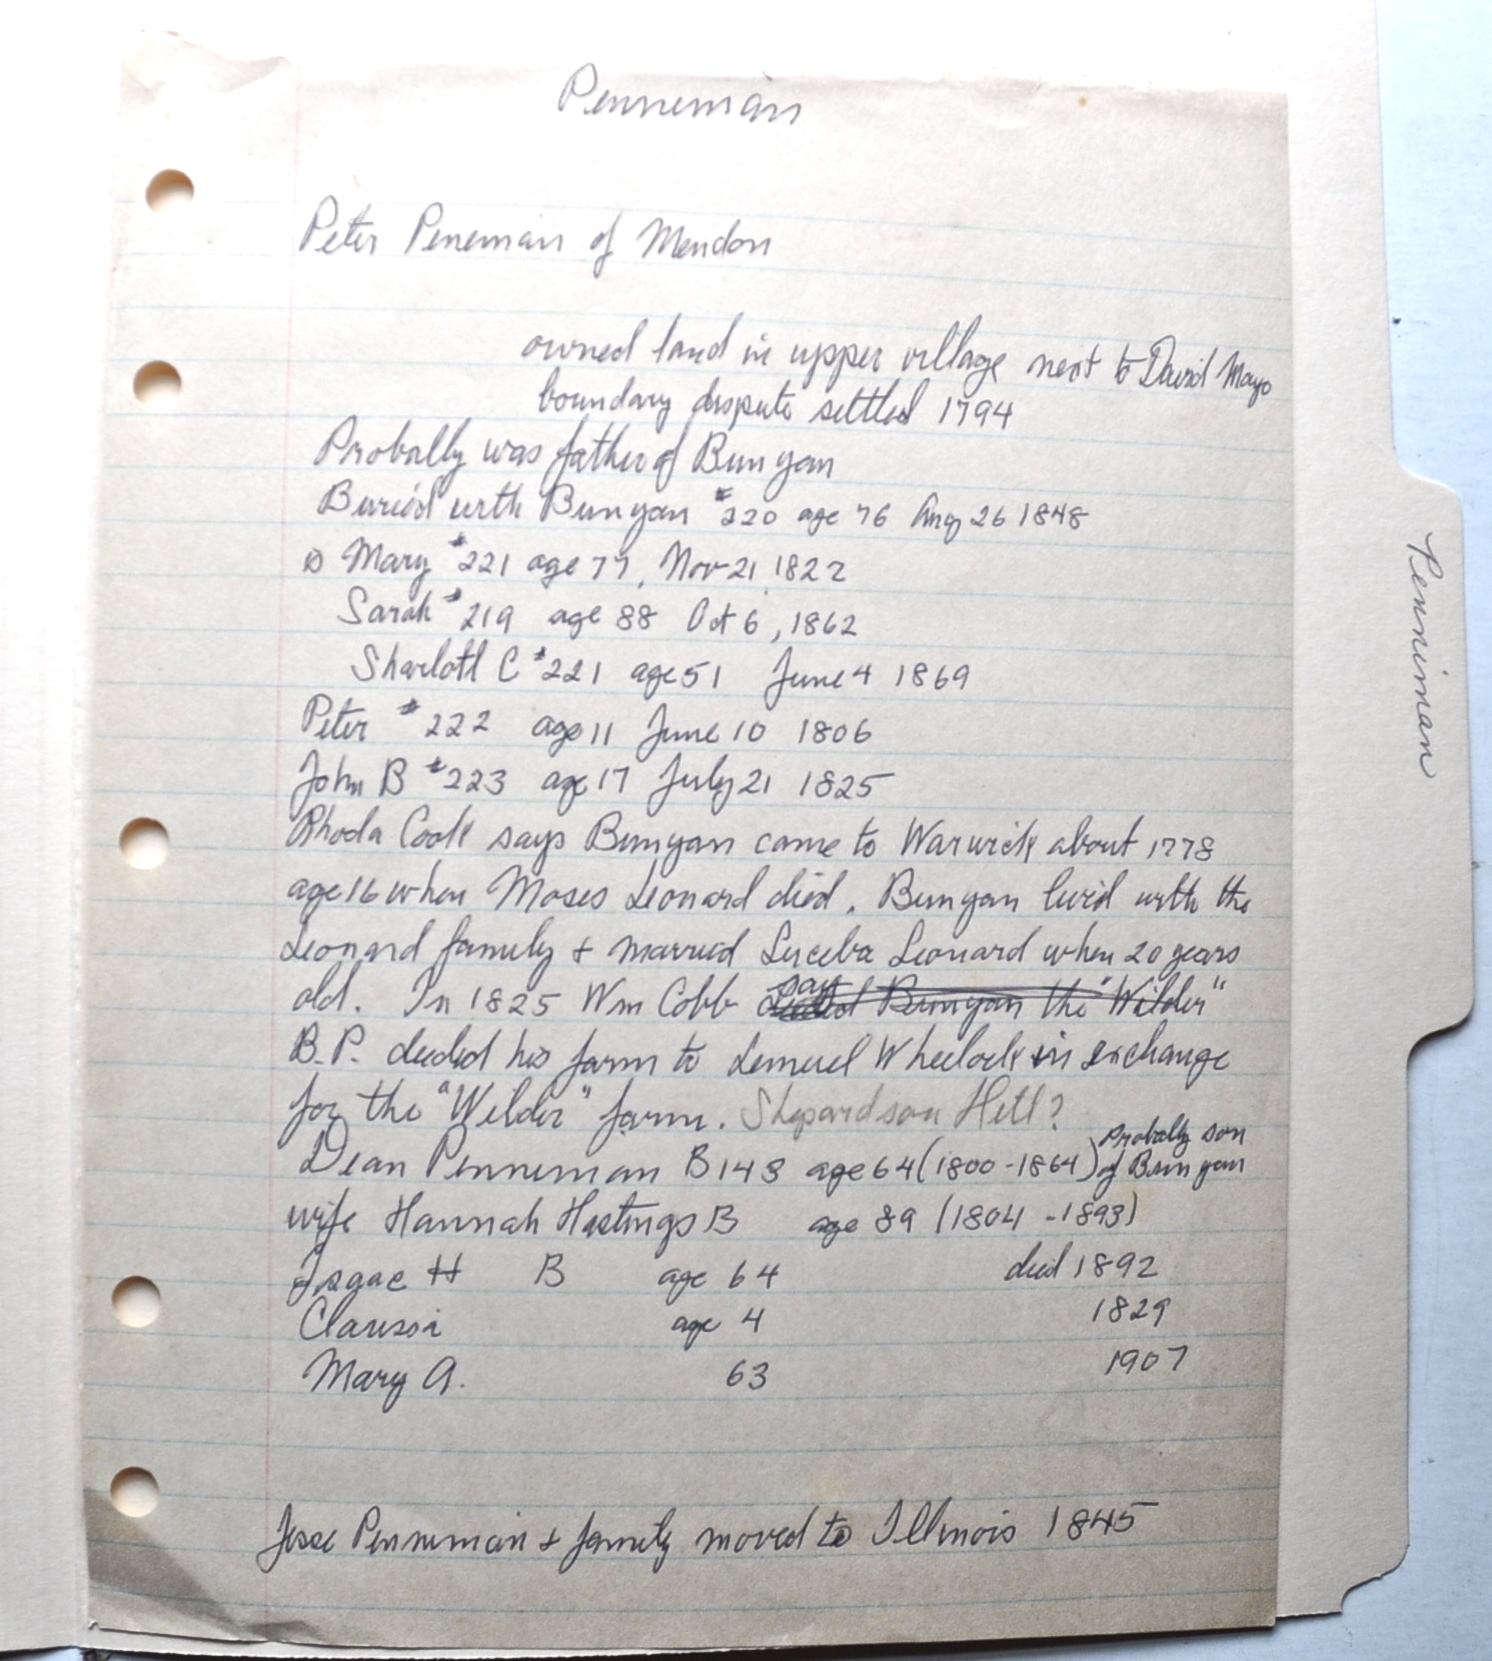 Penneman
Peter Peneman of Mendon
owned land in upper village next to David Mayo
boundary dispute settled 1794
Probally was father of Bunyan
Buried with Bunyan #220 age 76 Aug 26 1848
Mary #221 age 77, Nov 21 1822
Sarah #219 age 88 Oct 6, 1862
Sharlott C #221 age 51 June 4 1869
Peter #222 age 11 June 10 1806
John B #223 age 17 July 21 1825
Rhoda Cook says Bunyan came to Warwick about 1778
age 16 when Moses Leonard died. Bunyan livid with the
Leonard family + married Luceba Leonard when 20 years
old. In 1825 Wm Cobb says Bunyan the "Wilder"
B.P. deeded his farm to Lemuel Wheelock in exchange
for the "Wilder" farm. Shepardson Hill?
Dean Penneman B 148 age 64 (1800-1864) Probally son of Bunyan
wife Hannah Hastings B age 89 (1804-1893)
Isaac H B age 64 died 1892
Clarissa age 4 1829
Mary A. 63 1907
Jesse Penneman + family moved to Illinois 1845
Penniman